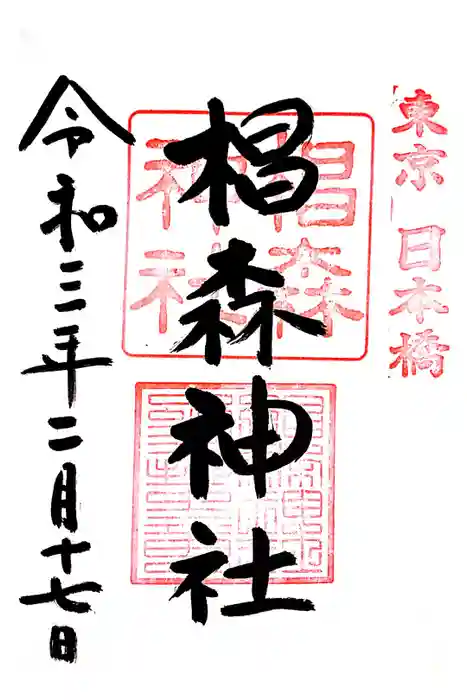 東京 日本橋
椙森神社
椙森
神社
令和三年二月十七日